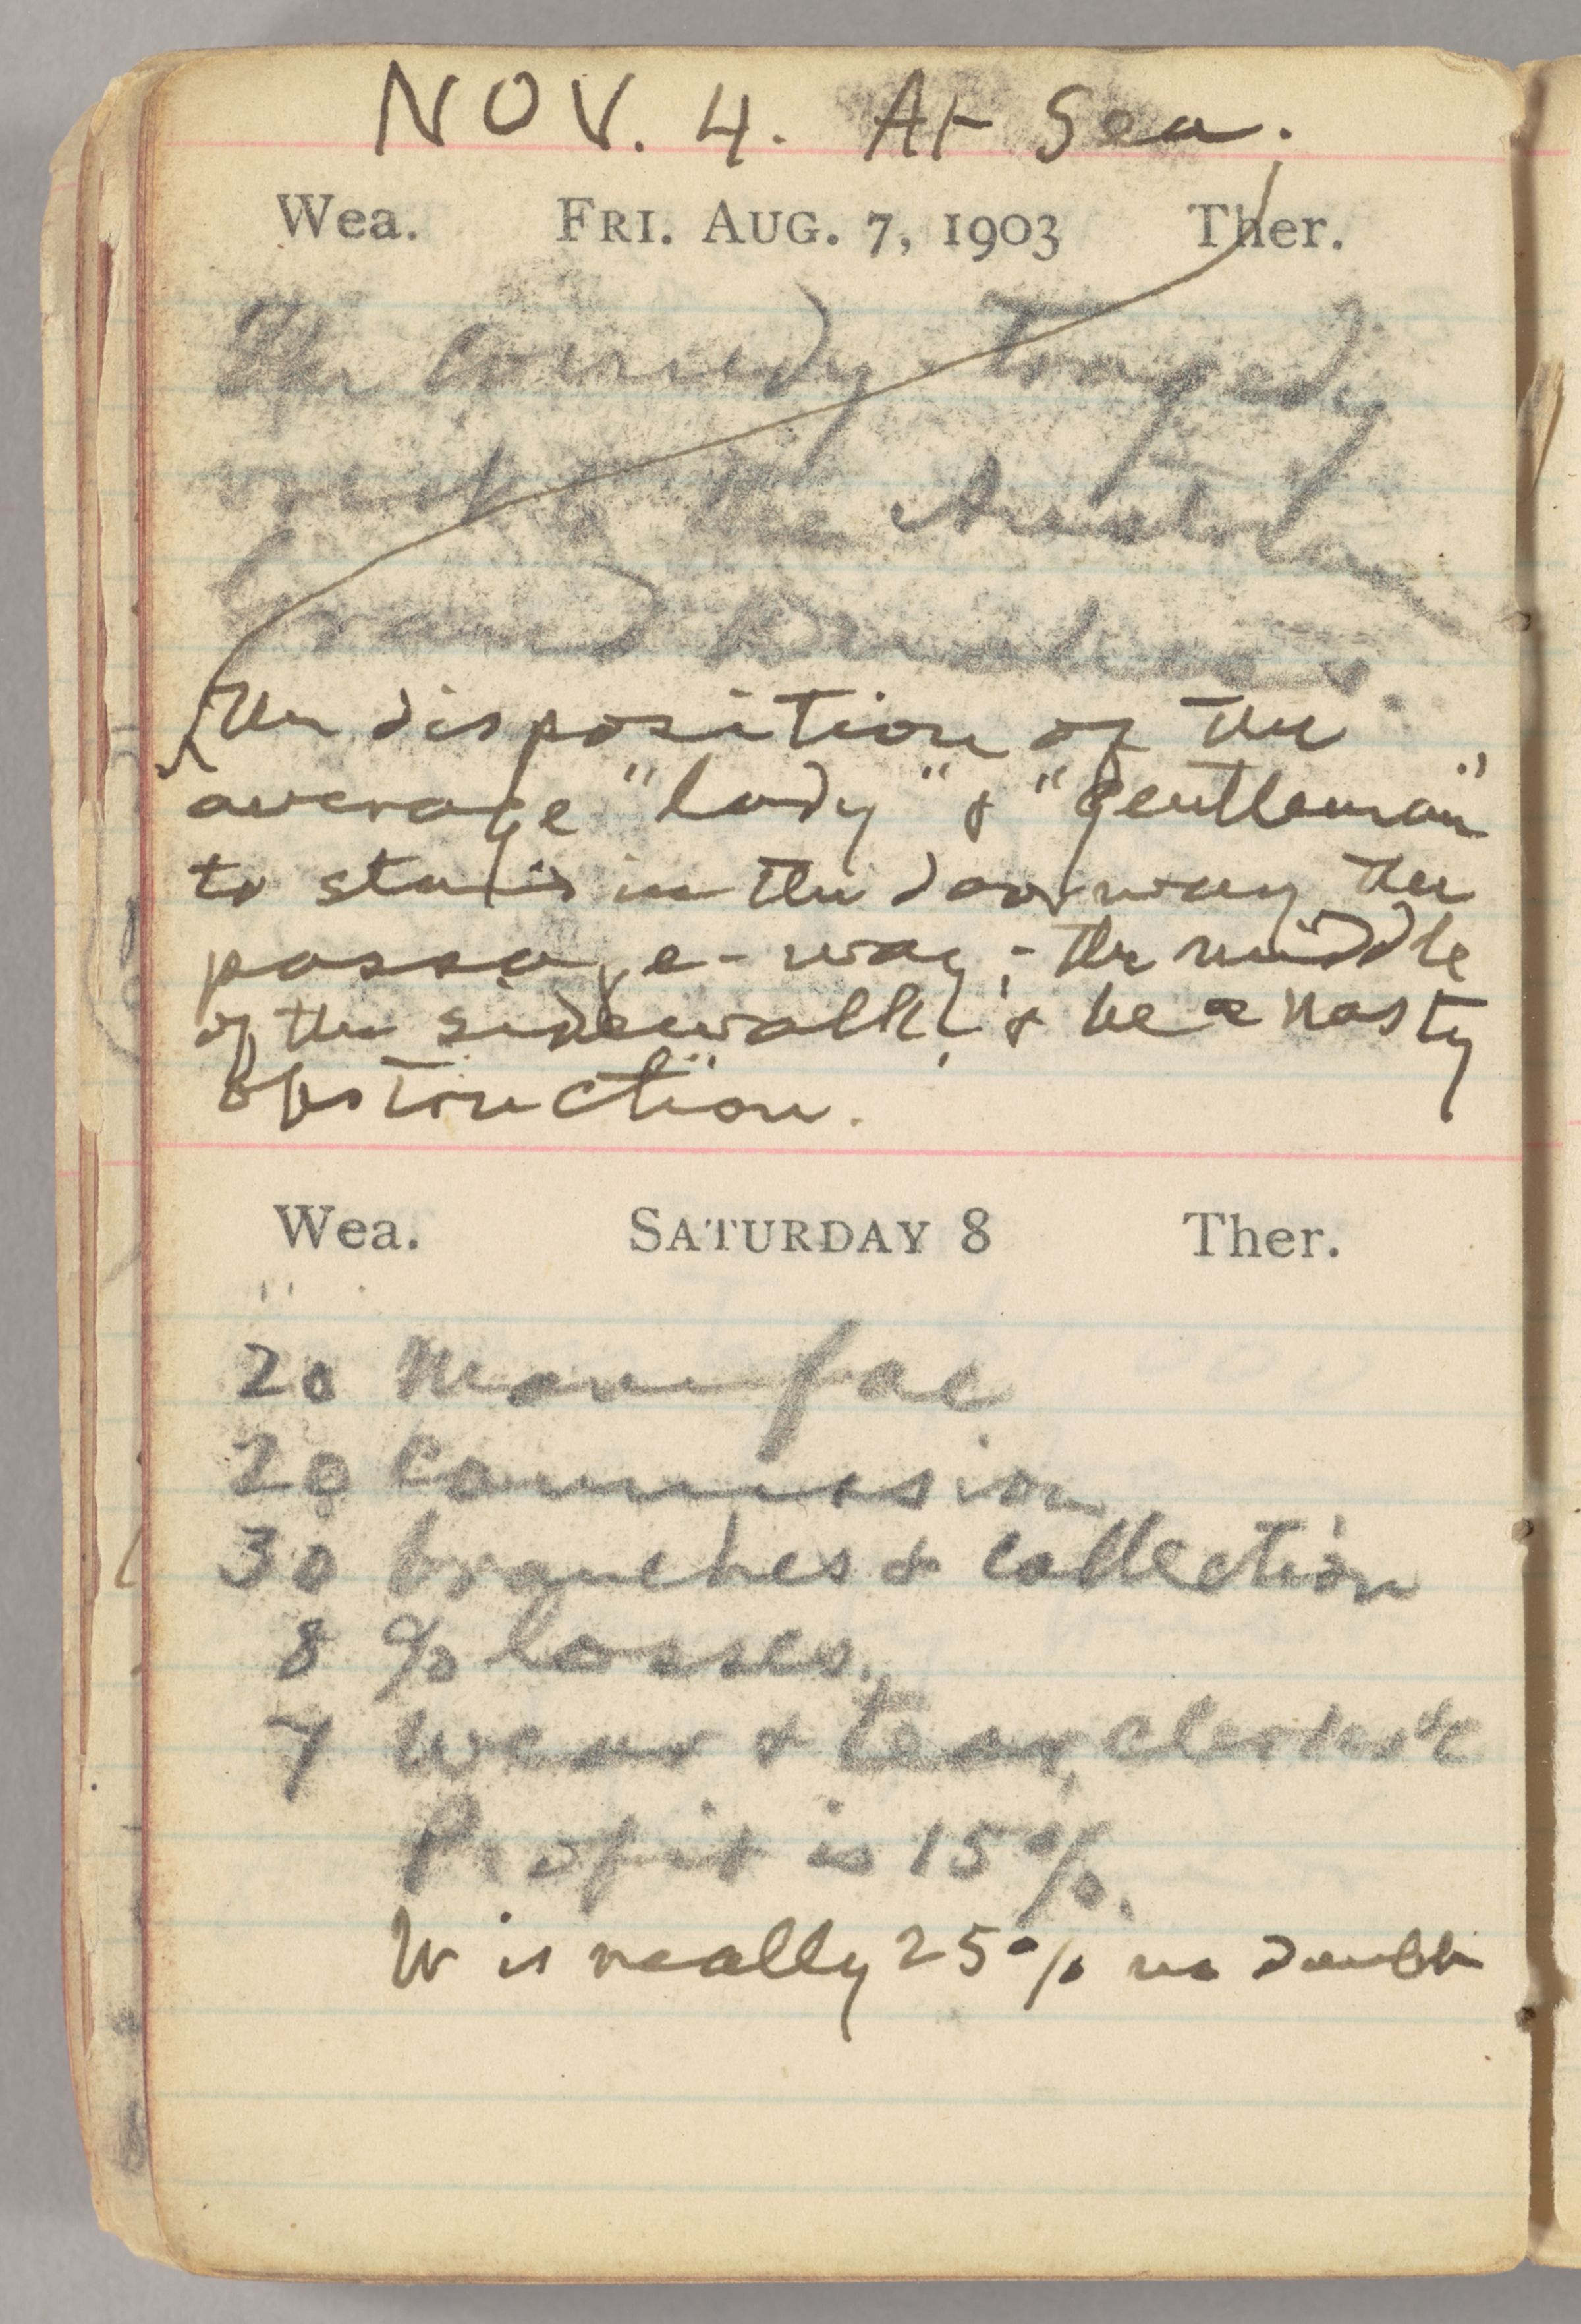 NOV. 4. At Sea.
Wea. FRI. AUG. 7, 1903 Ther.
The comedy-tragedy
the Austrian
Grand Duchess.
The disposition of the
average "lady" & "gentleman"
to stand in the doorway the
passage-way; - the middle
of the sidewalk; & be a nasty
obstruction.
Wea. SATURDAY 8 Ther.
20 Manufac
20 Commission
30 branches & collection
8 % losses.
7 Wear & tear, clerks &c
Profit is 15%.
It is really 25% no doubt